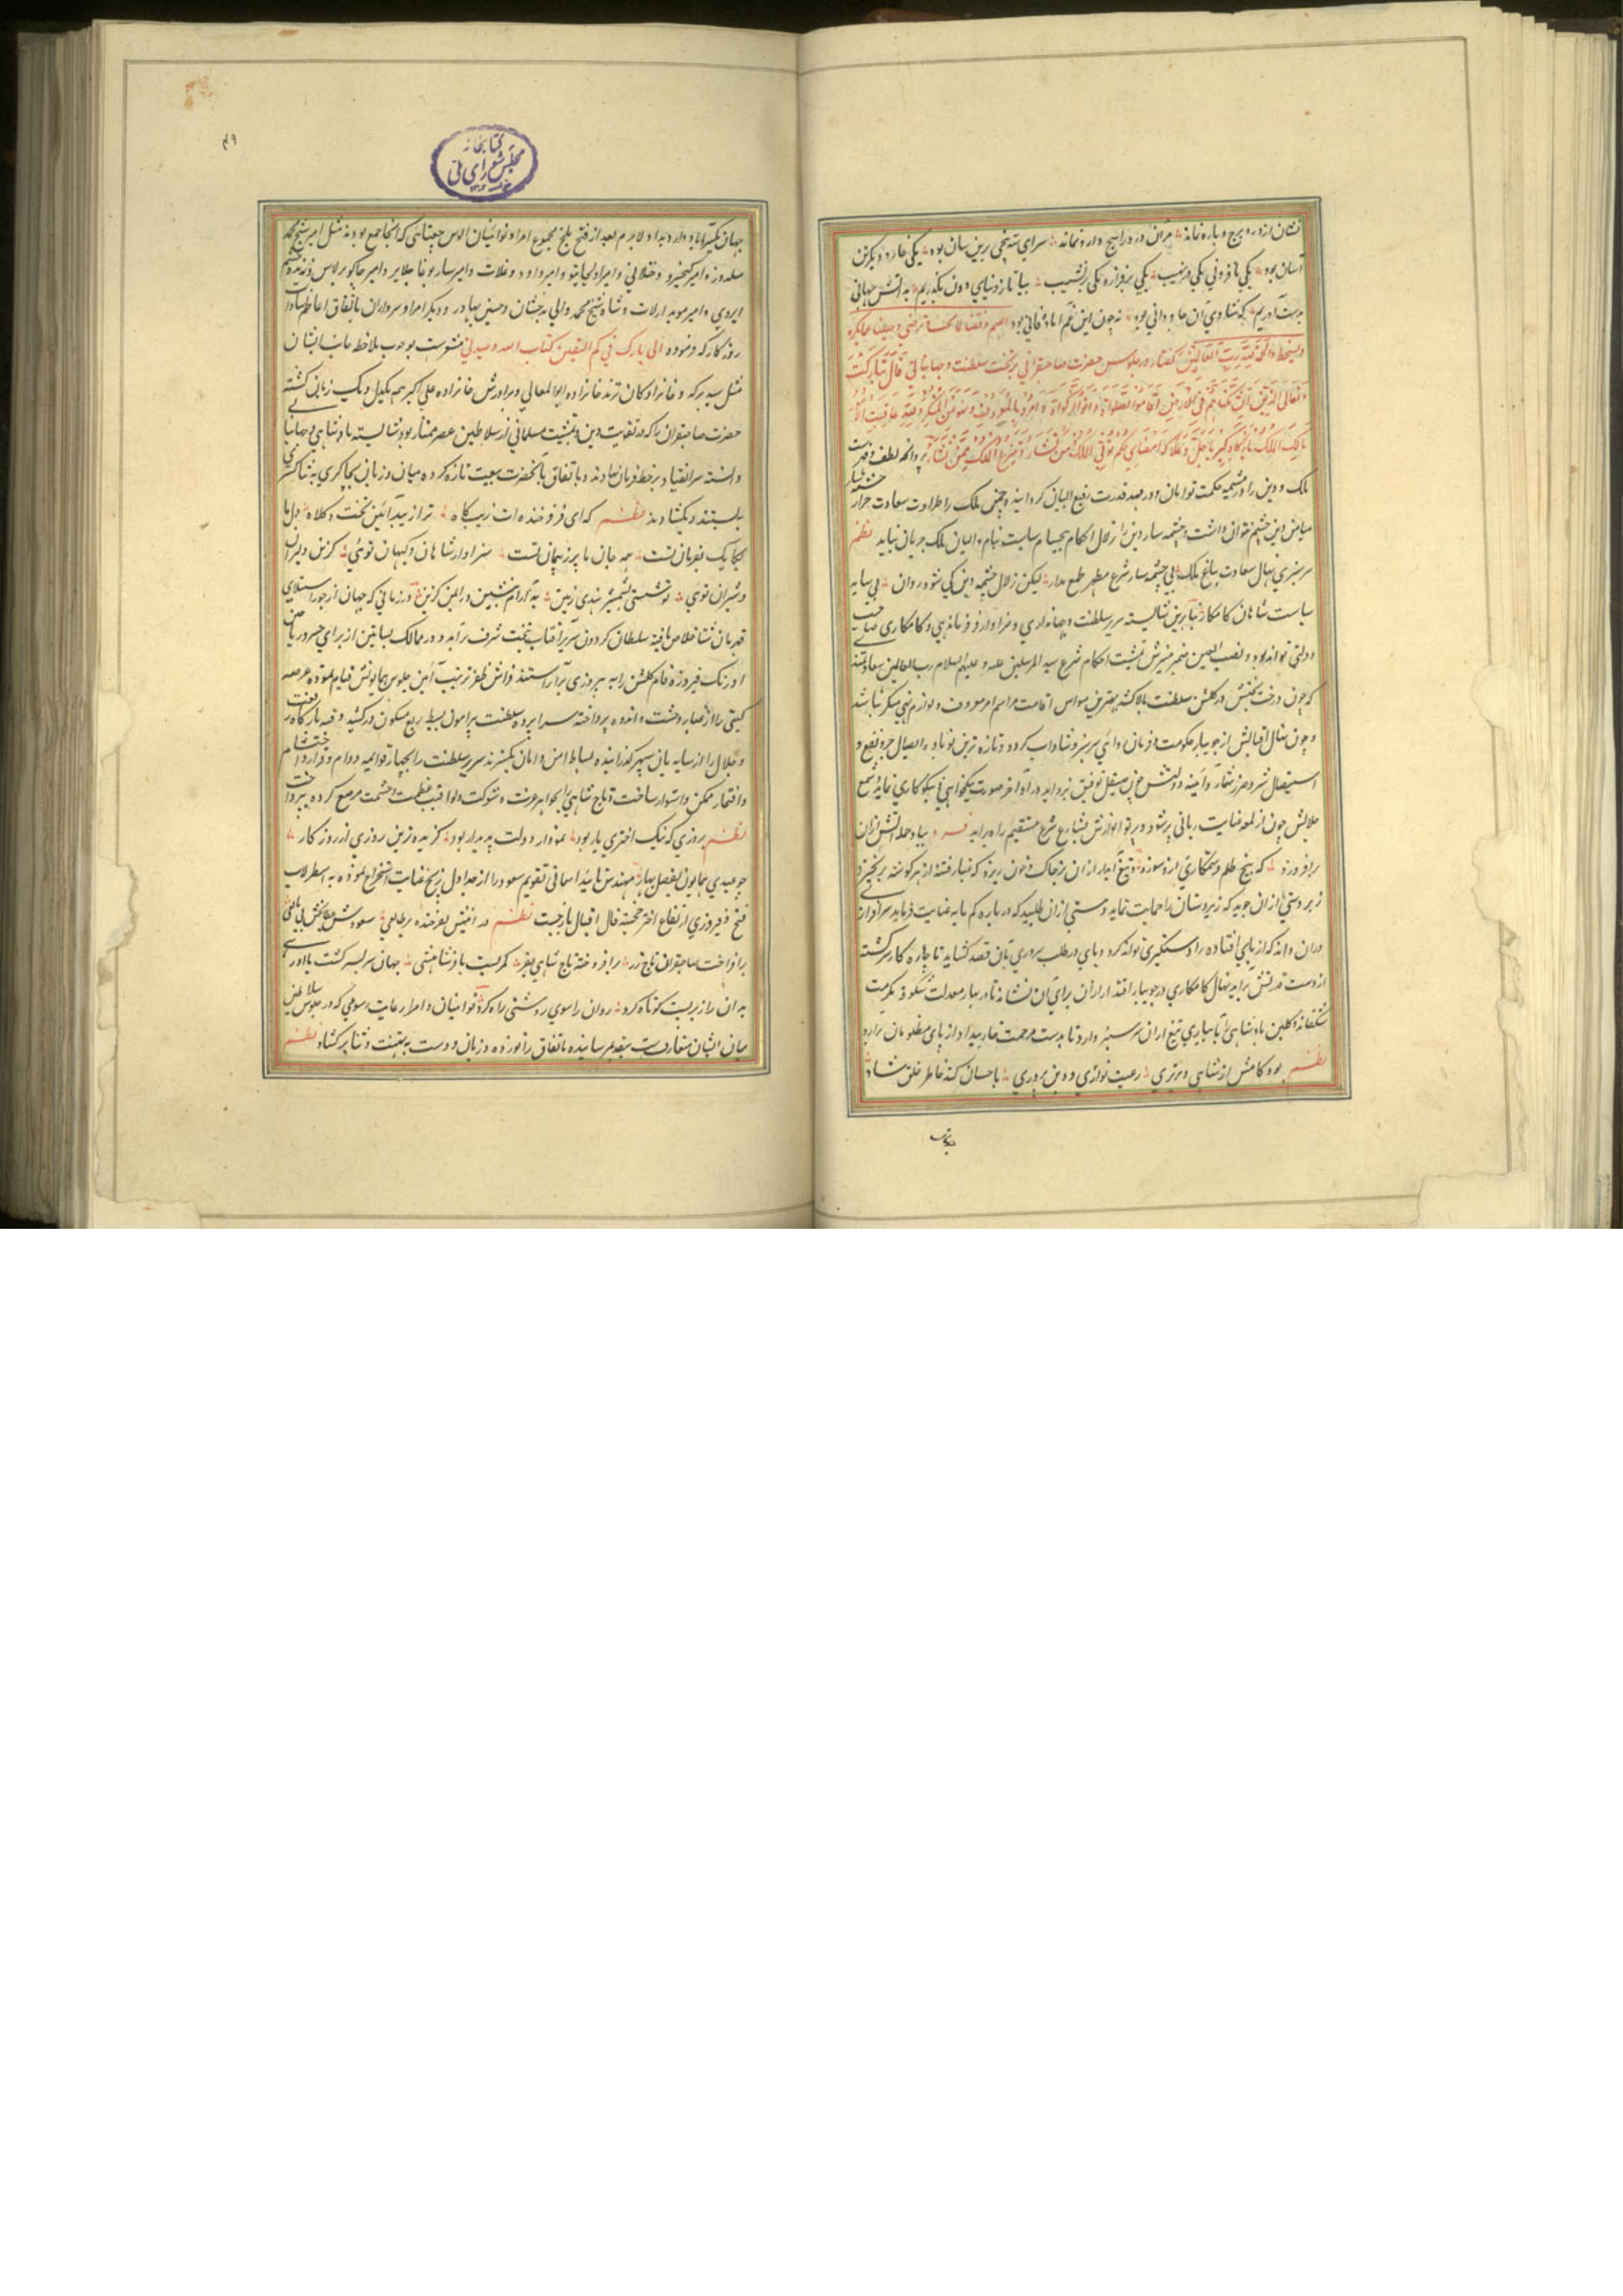 نشان از در و برج و باره نماند مران در در ایج و ارو نماند سرای سپنجی برین سان بود یکی خوار و دیگر تن
آسان بود یکی بر فرونی یکی در نهیب یکی بر فراز و یکی در نشیب بیا تا ز دنیای دون بگذریم به دانش جهانی
بدست آوریم که شادی آن جاودانی بود نه چون این غم آباد فانی بود اللهم وفقنا لما تحب و ترضی
والحمد لله رب العالمین گفتار در جلوس حضرت صاحبقرانی بر تخت سلطنت و جهانبانی قال تبارک
و تعالی الذین ان مکناهم فی الارض اقاموا الصلواة و اتوا الزکواة و امروا بالمعروف و نهوا عن المنکر و لله عاقبة الامور
مالک الملک بارگاه کبریا جل و علا که امضای حکم تؤتی الملک من تشاء و تنزع الملک ممن تشاء پروانه لطف و قهر
ملک و دین را در مشیمه حکمت توامان و در مهد قدرت رضیع اللبان گردانیده چمن ملک را طراوت سعادت جز از
میامن دین چشم نتوان داشت و چشمه سار دین را زلال احکام بی حسام سیاست نیام والیان ملک جریان نیابد نظم
سرسبزی نهال سعادت بباغ ملک بی چشمه سار شرع مطهر طمع مدار لیکن زلال چشمه دین کی شود روان بی سایه
سیاست شاهان کامکار بنابرین شایسته سریر سلطنت و جهانداری و سزاوار فرماندهی و کامکاری صاحب
دولتی تواند بود و نصب العین ضمیر منیرش تمشیت احکام شرع سید المرسلین علیه و علیهم السلام رب العالمین
که چون درخت بختش در گلشن سلطنت بالا کشد بهترین میوه اش اقامت مراسم امر معروف و لوازم نهی منکر باشد
و چون نهال اقبالش از جویبار حکومت و فرمان روائی سرسبز و شاداب گردد تازه ترین نوباوه ایصال خیر و نفع و
استیصال شر و ضرر شمارد و آئینه دولتش چون بصیقل توفیق بزداید در آو جز صورت نیکخواهی و نیکوکاری ننماید و شمع
جلالش چون از لمعه عنایت ربانی پر شود و پرتو انوارش بشارع شرع مستقیم راه بر آید
برافروزد که بیخ ظلم و ستمکاری ازو سوزد و تیغ آبدار از ان بر خاک خون ریزد که غبار فتنه از هر گوشه برنخیزد
زبردستی از ان جوید که زیردستان را حمایت نماید و مستی از ان طلبد که درباره کم مایه عنایت فرماید سرافرازی
دران داند که از پای افتاده را دستگیری تواند کرد و پای در طلب سروری بآن قصد کشاید تا چاره کار سرگشته
از دست قدرتش برآید نهال کامکاری در جویبار اقتدار از آن برای آن نشاند تا در بهار معدلت شکوفه مکرمت
شکفاند و گلبن پادشاهی را بآبیاری تیغ از ان سرسبز دارد تا بدست مرحمت خار بیداد از پای مظلومان برآرد
نظم بود کامش از شاهی و برتری رعیت نوازی و دین پروری باحسان کند خاطر خلق شاد
۴۹
کتابخانه
مجلس شورای ملی
جهان یکسر آباد دارد بداد لاجرم بعد از فتح بلخ مجموع امرا و نوئینان الوس جغتای که آنجا جمع بودند مثل امیر شیخ محمد
سلدوز و امیر کیخسرو ختلانی و امیر اولجایتو و امیر داود دوغلات و امیر ساربوغا جلایر و امیر جاکو برلاس و زنده حشم
اپردی و امیر موید ارلات و شاه شیخ محمد والی بدخشان و حسین بهادر و دیگر امرا و سرداران باتفاق اعاظم سادات
روزگار که فرموده انی تارک فیکم الثقلین کتاب الله و عترتی منشورست بوجوب ملاحظه جانب ایشان
مثل سید برکه و خانزادگان ترمد خانزاده ابو المعالی و برادرش خانزاده علی اکبر همه یکدل و یک زبان گشته
حضرت صاحبقران را که در تقویت دین و تمشیت مسلمانی از سلاطین عصر ممتاز بود شایسته پادشاهی و جهانبانی
دانسته سر انقیاد بر خط فرمان نهادند و باتفاق بآنحضرت بیعت تازه کرده میان و زبان بچاکری و ثناگستری
ببستند و بکشادند نظم که ای فر فرخنده ات زیب گاه ترا زیبد آئین تخت و کلاه دل ما
یکایک بفرمان تست همه جان ما بر ز پیمان تست سزاوار شاهان و کیهان توئی گزین دلیران
و شیران توئی تو شستی بشمشیر هندی زمین به آرام بنشین و رامش گزین در زمانی که جهان از جور استیلای
قهرمان شتا خلاص یافته سلطان گردون سریر آفتاب بتخت شرف برآمد و در ممالک بساتین از برای خسرو ریاحین
اورنگ فیروزه فام گلشن را به پیروزی برآراستند فراش ظفر ترتیب آئین جلوس همایونش قیام نموده عرصه
گیتی را از غبار وحشت و اندوه پرداخته سراپرده سلطنت پیرامون بسیط ربع مسکون در کشید و قبه بارگاه رفعت
و جلال را از سایه بان سپهر گذرانیده بساط امن و امان بگسترند سریر سلطنت را بچهار قوایمه دوام و قرار و احتشام
و افتخار ممکن و استوار ساخت و تاج شاهی را بجواهر عزت و شوکت و لواقب عظمت و حشمت مرصع کرده بپرداخت
نظم بروزی که نیک اختری یار بود نمودار دولت پدیدار بود گزیده ترین روزی از روزگار
چو عیدی همایون بفصل بهار مهندس تائید آسمانی تقویم مسعود را از جداول زیج عنایت استخراج نموده به اسطرلاب
فتح و فیروزی ارتفاع اختر خجسته فال اقبال باز جست نظم در انیش بفرخنده تر طالعی سعودش همه بخش بی مانعی
برافراخت صاحبقران تاج زر برافروخته تاج شاهی بفر کمر بست با فر شاهنشهی جهان سر بسر گشت با او رهی
بدان را ز بد دست کوتاه کرد روان را سوی روشنی راه کرد نوئینان و امرا رعایت رسومی که در جلوس سلاطین
میان ایشان متعارف است بتقدیم رسانیده باتفاق زانو زده و زبان و دست به تهنیت و نثار برکشاد نظم